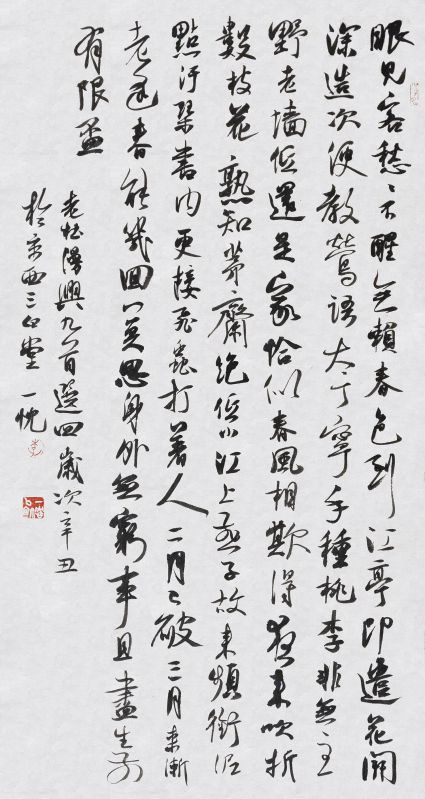 眼見客愁愁不醒無賴春色到江亭即遣花開
深造次便教鶯語太丁寧手種桃李非無主
野老墙低還是家恰似春風相欺得夜來吹折
數枝花熟知茅齋絕低小江上燕子故來頻銜泥
點汙琴書內更接飛蟲打著人二月已破三月來漸
老逢春能幾回莫思身外無窮事且盡生前
有限盃
老杜漫興九首選四歲次辛丑
於京西三堂一忱